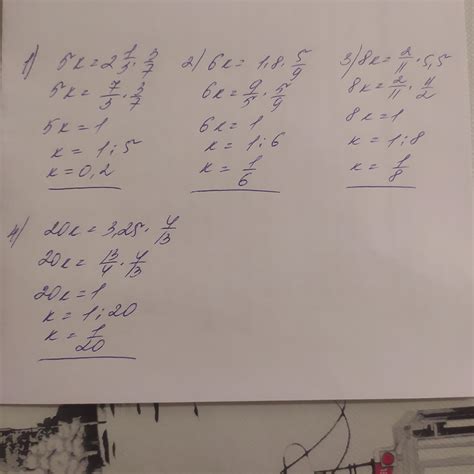 1) 5x = 2 1/3 · 3/7
5x = 7/3 · 3/7
5x = 1
x = 1 : 5
x = 0,2
2) 6x = 1,8 · 5/9
6x = 9/5 · 5/9
6x = 1
x = 1 : 6
x = 1/6
3) 8x = 2/11 · 5,5
8x = 2/11 · 11/2
8x = 1
x = 1 : 8
x = 1/8
4) 20x = 3,25 · 4/13
20x = 13/4 · 4/13
20x = 1
x = 1 : 20
x = 1/20